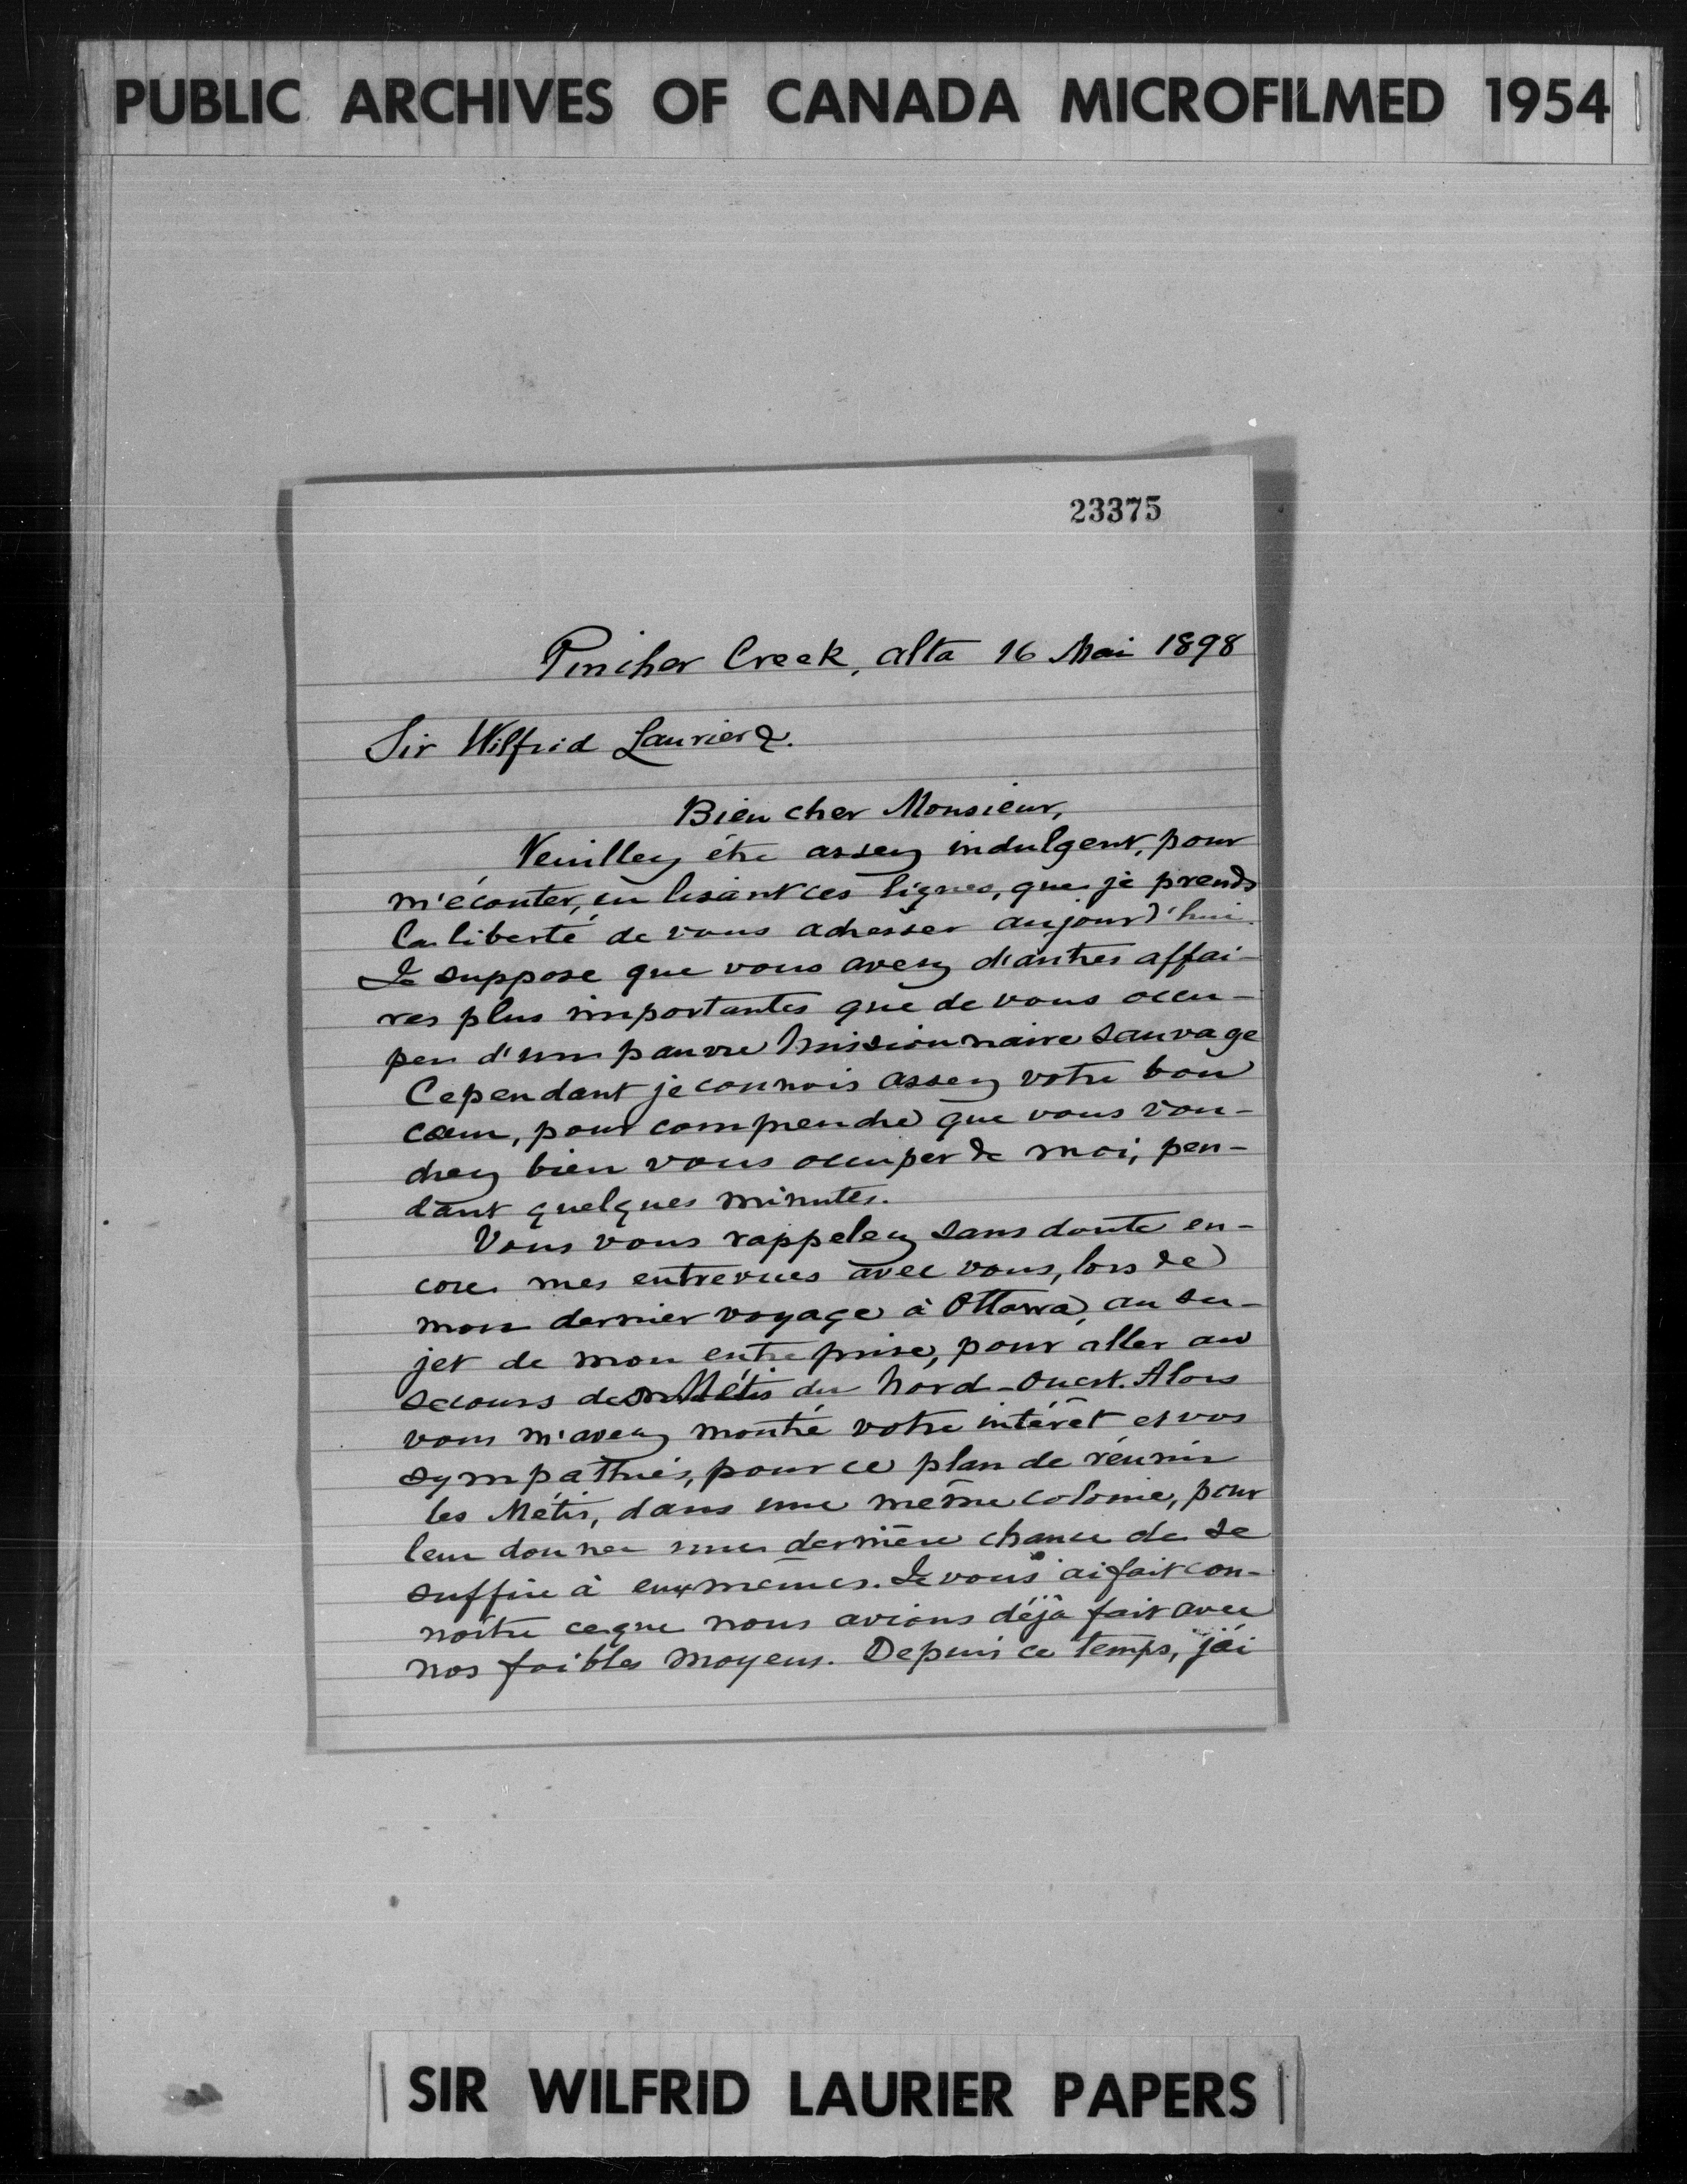 PUBLIC ARCHIVES OF CANADA MICROFILMED 1954
23375
Pincher Creek, alta 16 Mai 1898
Sir Wilfrid Laurier
Bien cher Monsieur,
Veuillez être assez indulgent, pour
m'écouter, en lisant ces lignes, que je prends
la liberté de vous adresser aujourd'hui.
Je suppose que vous avez d'autres affai-
res plus importantes que de vous occu-
per d'un pauvre Missionnaire sauvage
Cependant je connois assez votre bon
cœur, pour comprendre que vous vou-
drez bien vous occuper de moi, pen-
dant quelques minutes.
Vous vous rappelez sans doute en-
core mes entrevues avec vous, lors de
mon dernier voyage à Ottawa, au su-
jet de mon entreprise, pour aller au
secours des Métis du Nord-Ouest. Alors
vous m'avez montré votre intérêt et vos
sympathies, pour ce plan de réunir
les Métis, dans une même colonie, pour
leur donner une dernière chance de se
suffire à eux mêmes. Je vous ai fait con-
noître ce que nous avions déjà fait avec
nos foibles moyens. Depuis ce temps, j'ai
SIR WILFRID LAURIER PAPERS